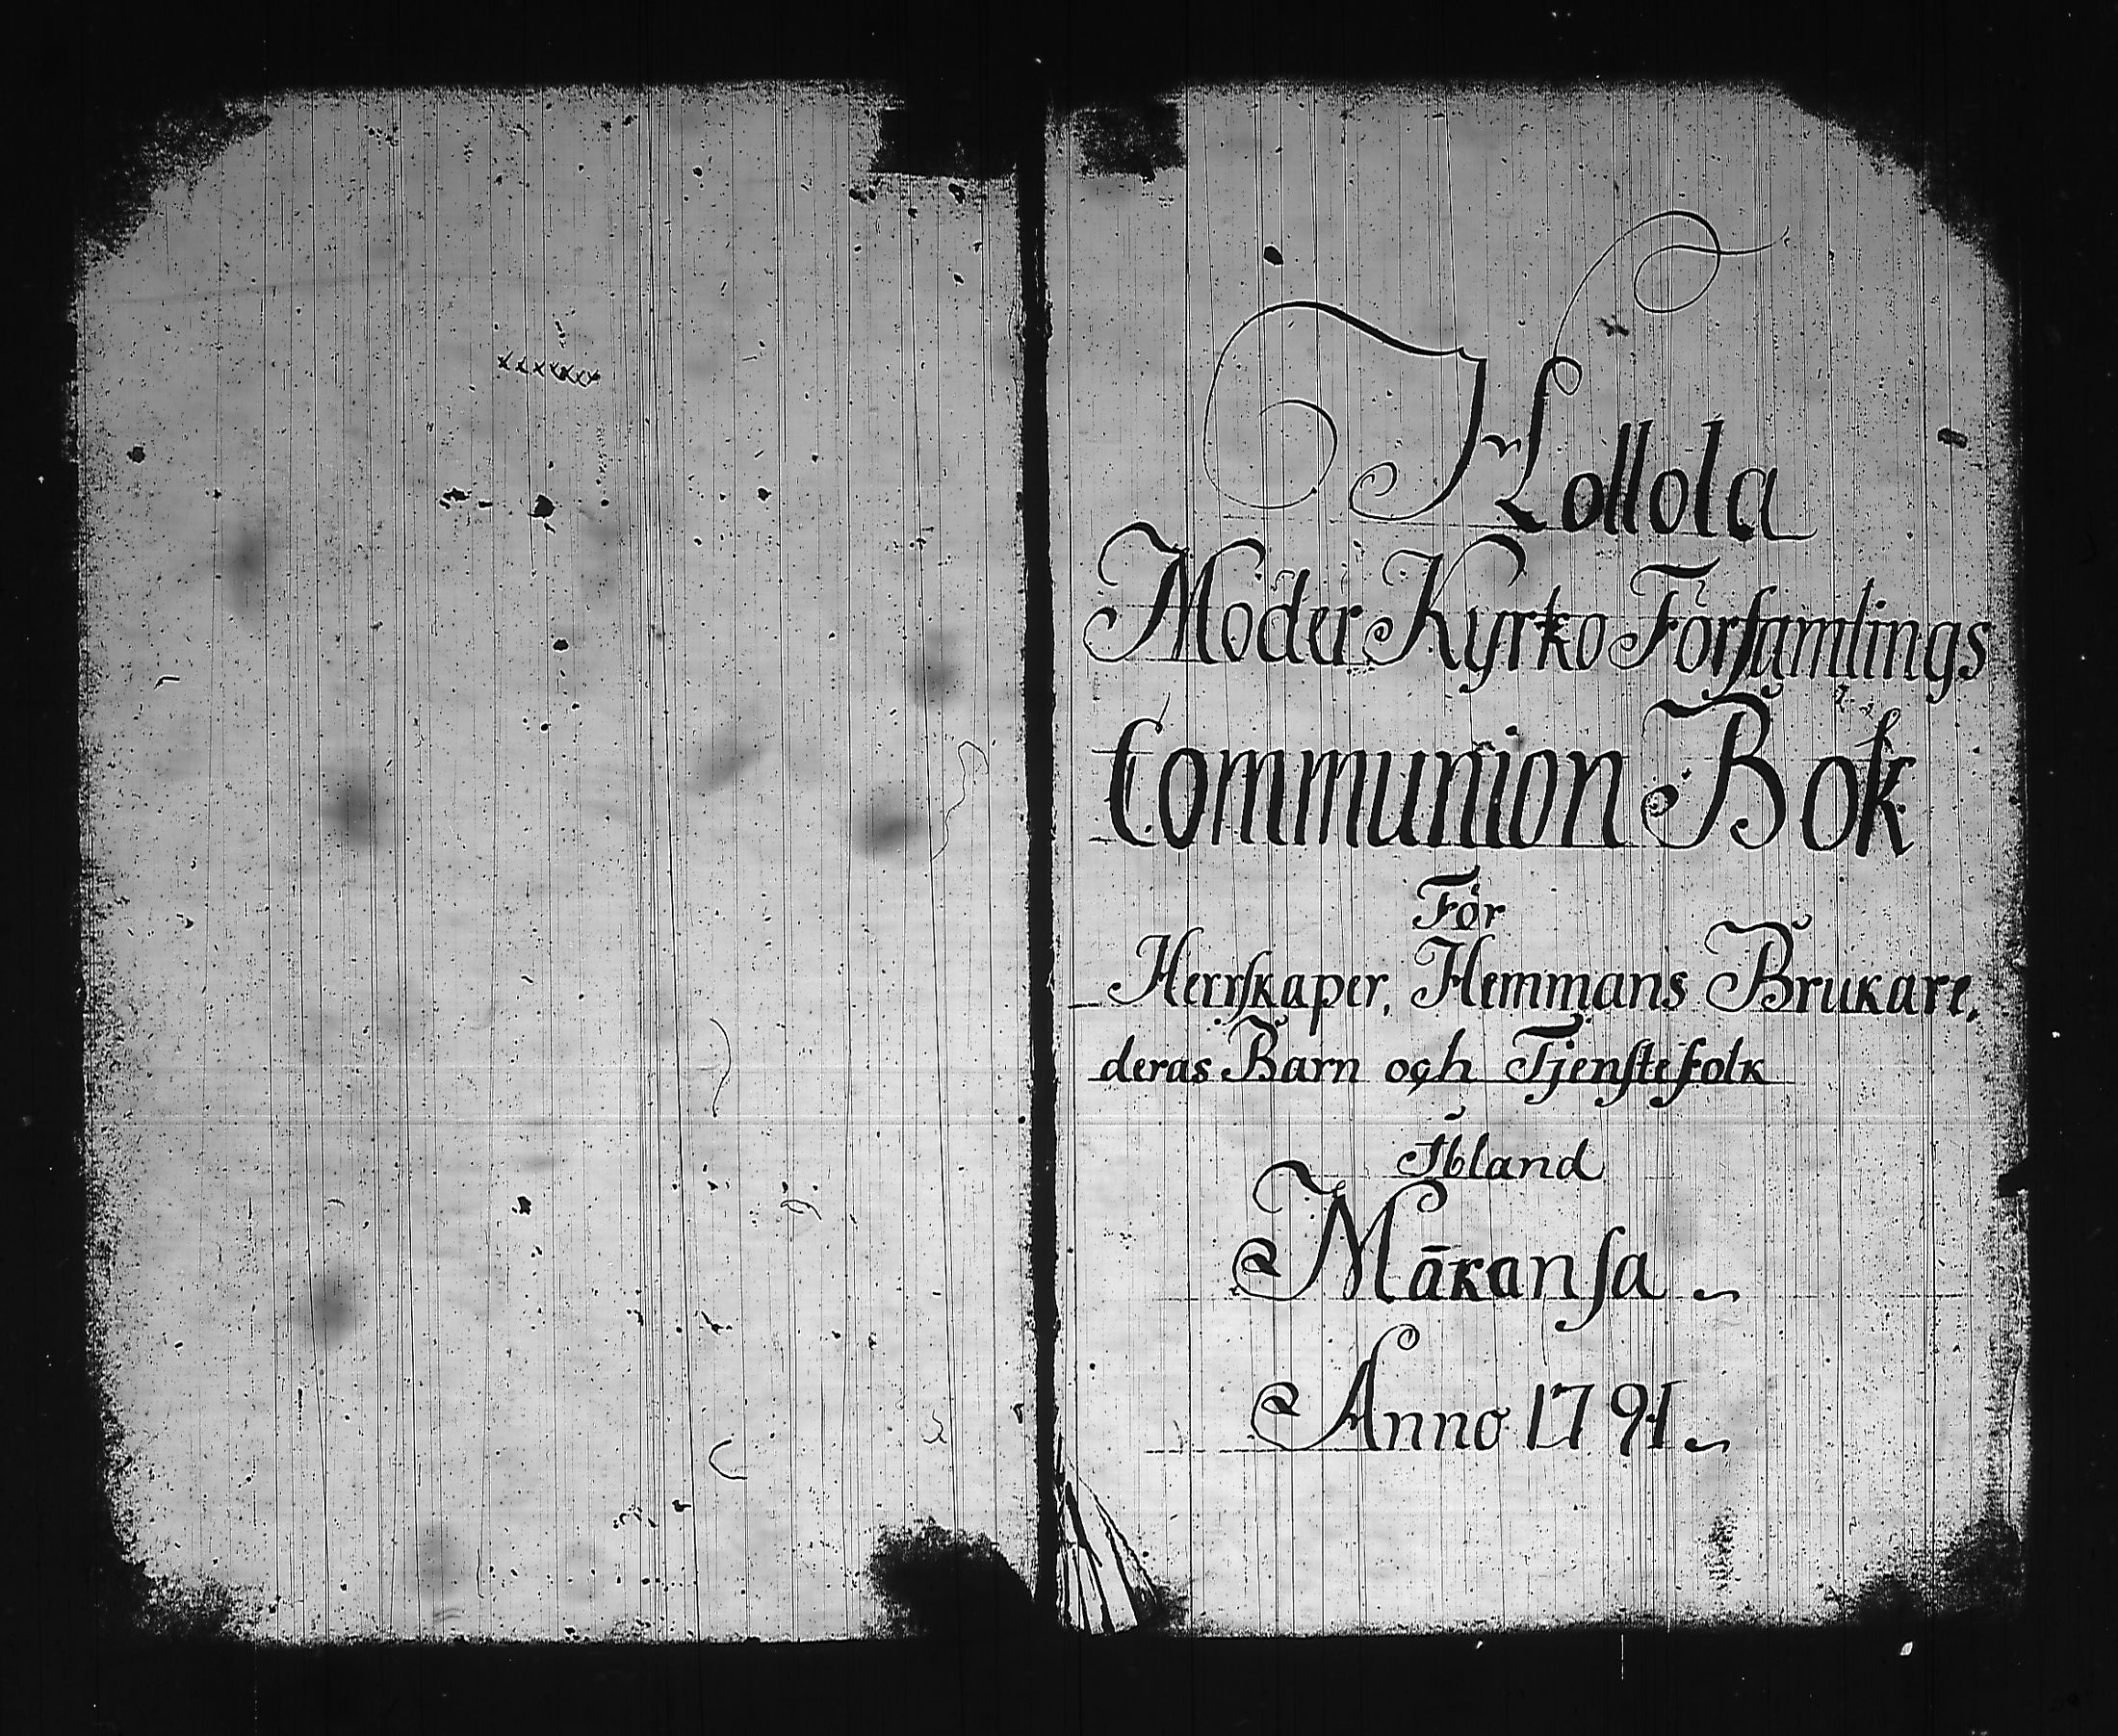 Hollola
Moder Kyrko Förſamlings
Communion Bok
För
Herrſkaper, Hemmans Brukare,
deras Barn och Tjenſtefolk
Ibland
Mākanſa
Anno 1791